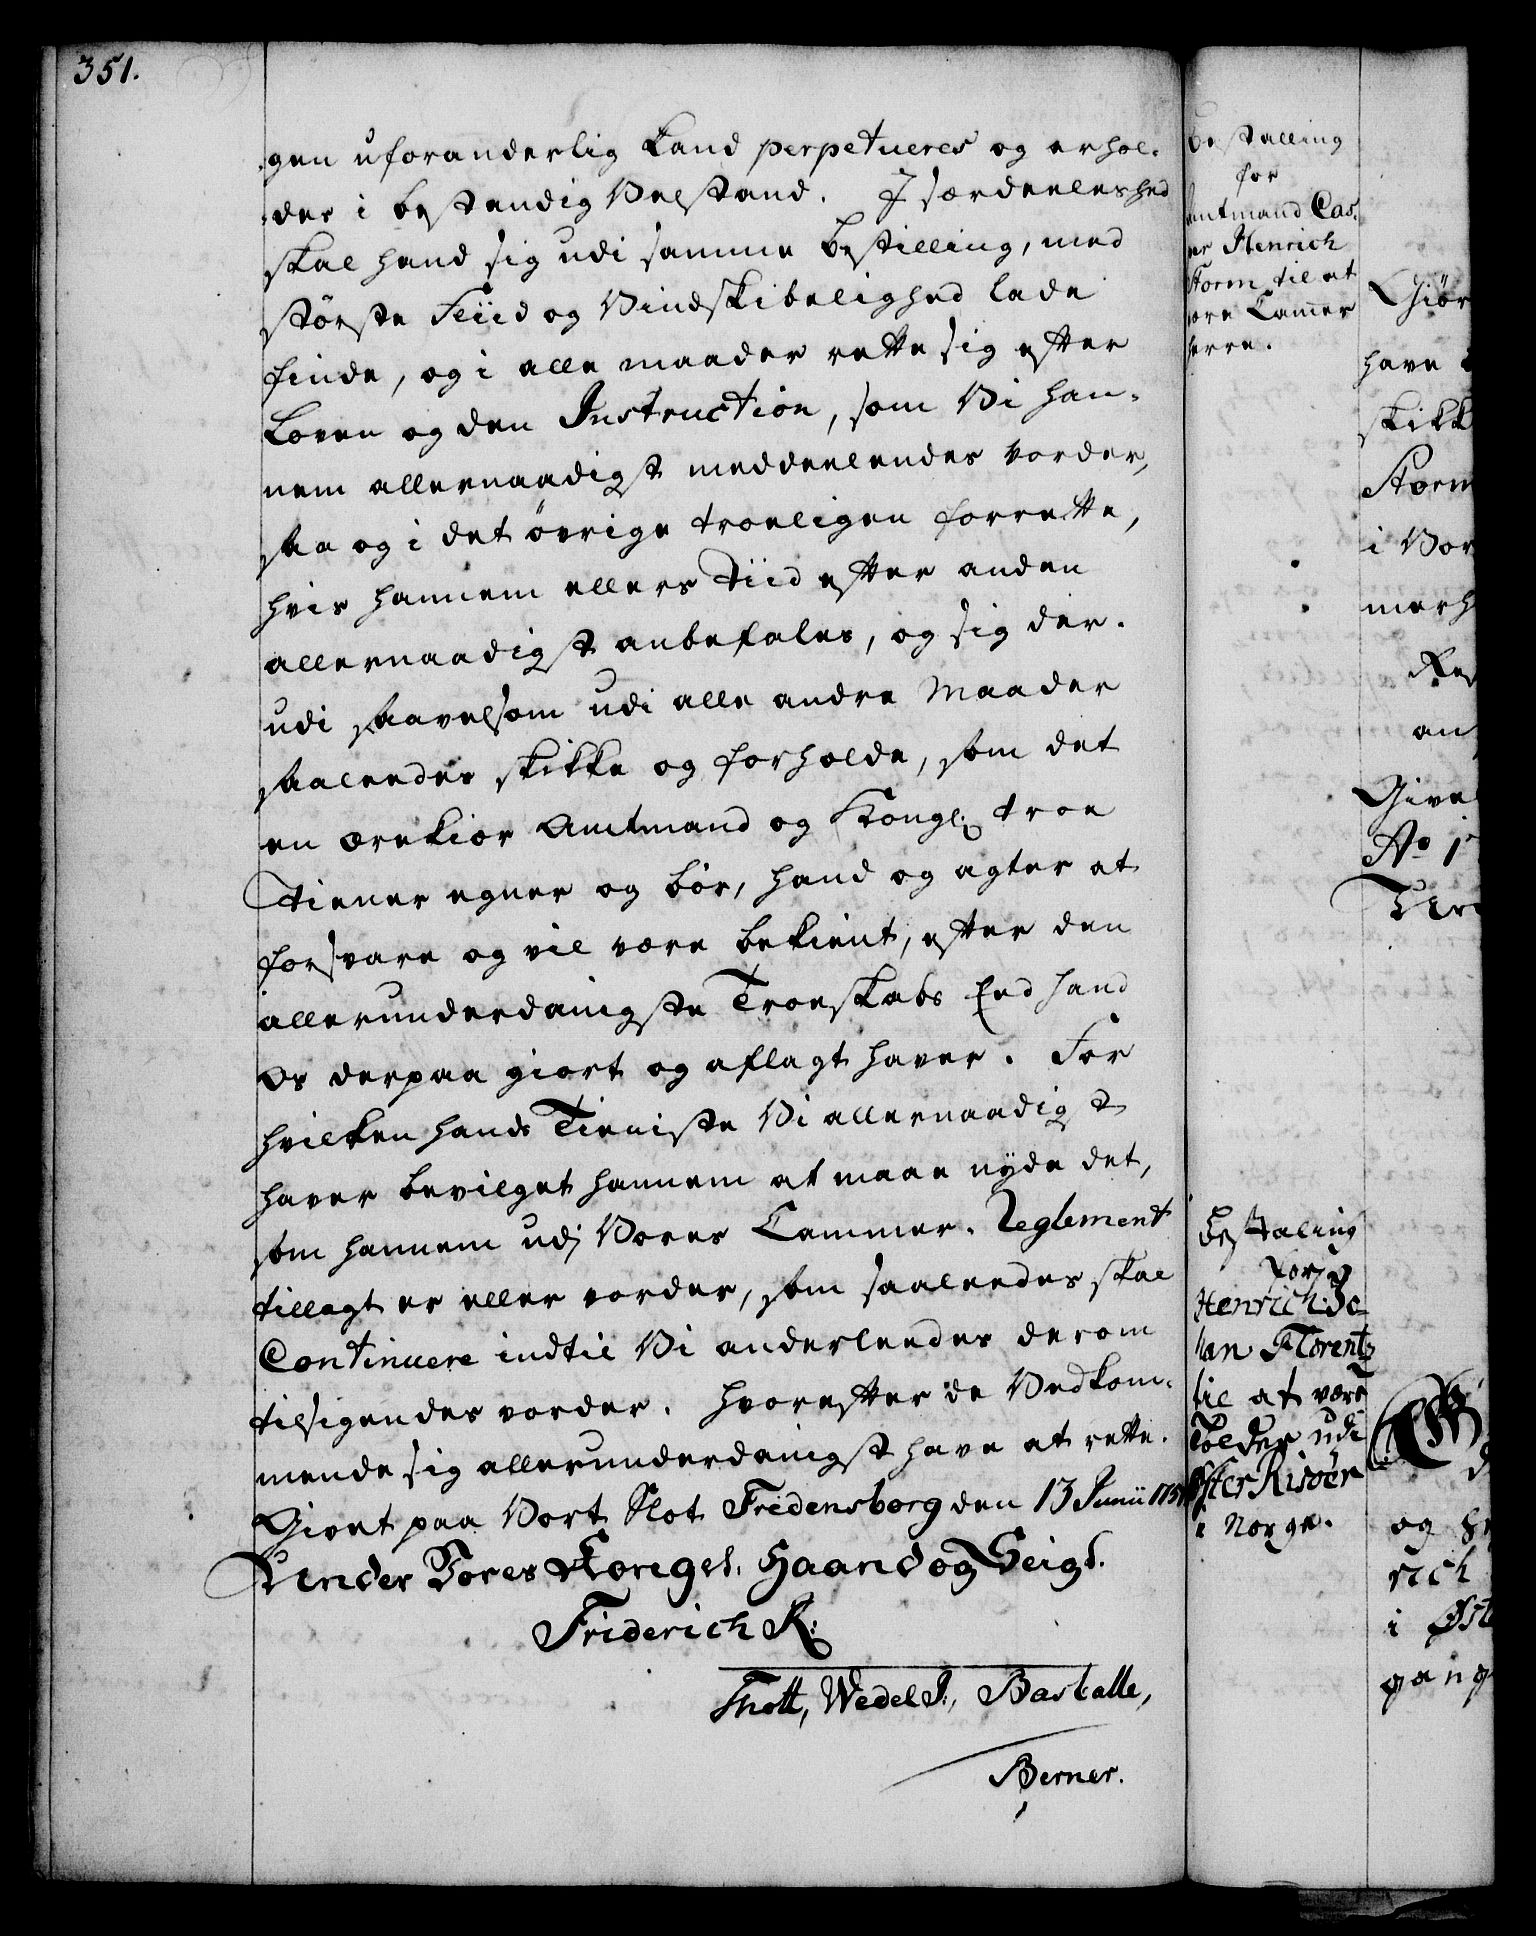 351.
gen uforanderlig kand perpetueres og erhol-
des i bestandig Velstand. I særdeeleshed
skal hand sig udi samme Bestilling, med
største Fliid og Vindskibelighed lade
finde, og i alle maader rette sig efter
Loven og den Instruction, som Vi han-
nem allernaadigst meddeelendes vorder,
saa og i det øvrige troeligen forrette,
hvis hannem ellers Tiid efter anden
allernaadigst anbefales, og sig der-
udi saavelsom udi alle andre Maader
saaleedes skikke og forholde, som det
en ærekiær Amtmand og Kongl: troe
Tiener egner og bør, hand og agter at
forsvare og vil være bekient, efter den
allerunderdanigste Troeskabs Eed hand
Os derpaa giort og aflagt haver. For
hvilken hands Tieniste Vi allernaadigst
haver bevilget hannem at maae nyde det,
som hannem udj Vores Cammer-Reglement
tillagt er eller vorder, som saaleedes skal
Continuere indtil Vi anderleedes derom
tilsigendes vorder. Hvorefter de Vedkom-
mende sig allerunderdanigst have at rette.
Givet paa Vort Slot Fredensborg den 13 Junii 175
Under Vores Kongel. Haand og Seigl.
Friderich R:
Thott, Wedel J:, Barkalle,
Berner.
Bestalling
for
Amtmand Cas-
er Henrich
Storm til at
være Cammer
herre.
Bestaling
for
Henrich Jo-
han Florentz
til at være
Tolder udi
Øster Risöer
i Norge.
Giör
have
skikk
Storm
i Vor
merh
Res
an
Give
Ao 1
Un
og H
rich
i Øst
gang